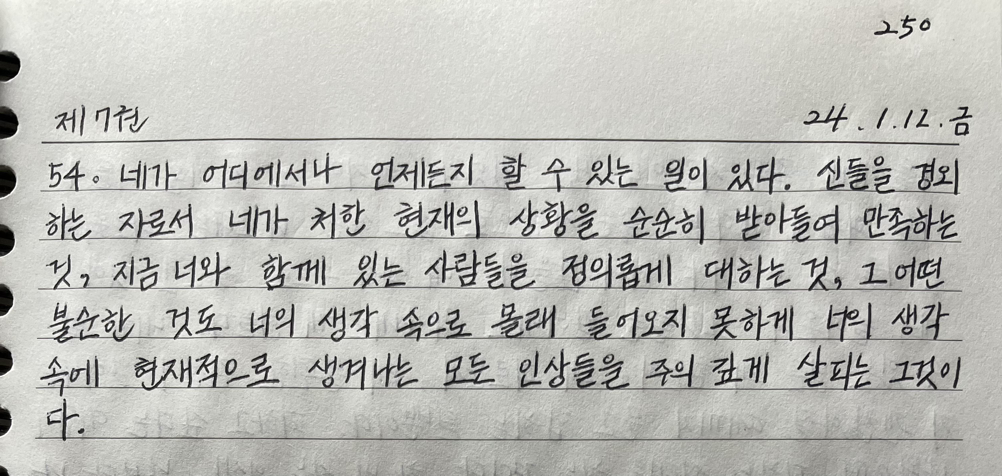 250
제7권 24.1.12.금
54. 네가 어디에서나 언제든지 할 수 있는 일이 있다. 신들을 경외
하는 자로서 네가 처한 현재의 상황을 순순히 받아들여 만족하는
것, 지금 너와 함께 있는 사람들을 정의롭게 대하는 것, 그 어떤
불순한 것도 너의 생각 속으로 몰래 들어오지 못하게 너의 생각
속에 현재적으로 생겨나는 모든 인상들을 주의 깊게 살피는 그것이
다.